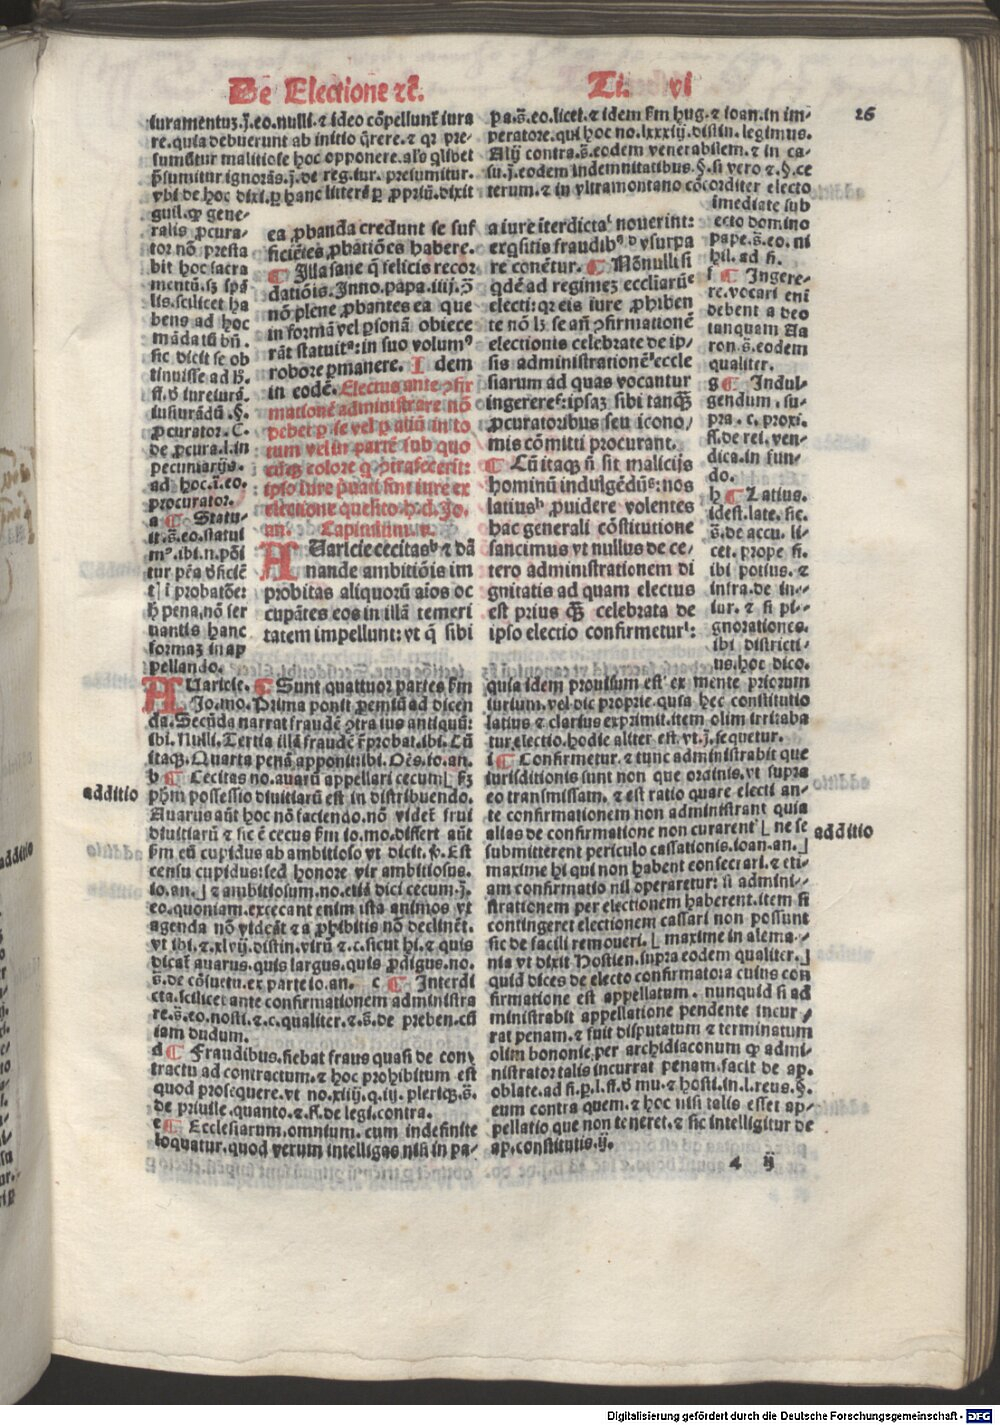 De Electione ⁊c̄.
Ti. vi
26
iuramentuz.j̄.eo.nulli.⁊ ideo cōpellunt̄ iura
re.quia debuerunt ab initio q̄rere.⁊ qꝛ pre-
sumūtur malitiose hoc opponere.al's q̄libet
p̄sumitur ignorās.j̄.de reg.iur. presumitur.
vbi de hoc dixi.ꝑ hanc litterā ꝑ ꝓpriū.dixit
guil.ꝙ gene-
ralis ꝓcura-
tor nō presta
bit hoc sacra
mentū.sꝫ spā
lis.scilicet ha
bens ad hoc
mādatū bn̄.
sic dicit se ob
tinuisse ad lr̄.
ff.d̄ iureiurā.
iusiurādū.§.
ꝓcurator.C.
de ꝓcura.l.in
pecuniarijs.
ad hoc.ī.eo.
procurator.
a ¶ Statu-
it.s̄.eo.statui
mꝰ.ibi.n.pōi
tur pēa d̄ficiē
t] ī probatōe:
h̄ pena.nō ser
uantis hanc
formaz in ap
pellando.
ea ꝓbanda credunt se suf
ficiētes ꝓbatiōes habere.
¶ Illa sane q̄ felicis recor
datiōis.Inno.papa.iiij.ꝯ
nō plene ꝓbantes ea que
in formā vel ꝑsonā obiece
rāt statuitᵃ:in suo volumꝰ
robore ꝑmanere. Idem
in eodē. Electus ante ꝯfir
mationē administrare nō
debet ꝑ se vel ꝑ aliū in to
tum vel in partē sub quo
cūqꝫ colore ꝙ ꝯtrafecerit:
ipso iure p̄uati sint iure ex
electione quesito h.d.Jo.
an. Capitulum.v.
AUaricie cecitasᵇ ⁊ dā
nande ambitiōis im
probitas aliquorū aīos oc
cupātes eos in illā temeri
tatem impellunt:vt q̄ sibi
a iure īterdictaᶜ nouerint:
exq̄sitis fraudibꝰ ᵈ vsurpa
re conētur. ¶ Nōnulli si
q̄dē ad regimeꝫ eccl̄iarūᵉ
electi:qꝛ eis iure ꝓhiben
te nō lꝫ se an̄ ꝯfirmationē
electionis celebrate de ip-
sis administrationē eccle
siarum ad quas vocantur
ingerereᶠ:ipsaꝫ sibi tanqꝫ
ꝓcuratoribus seu icono/
mis cōmitti procurant.
¶ Cū itaqꝫ n̄ sit malicijs
hominū indulgēdūᵍ:nos
latiusʰ ꝓuidere volentes
hac generali cōstitutione
sancimus vt nullus de ce/
tero administrationem di
gnitatis ad quam electus
est prius qꝫ celebrata de
ipso electio confirmeturⁱ:
pa.s̄.eo.licet.⁊ idem s̄m hug.⁊ ioan.in im-
peratore.qui hoc no.lxxxiij.distin.legimus.
Alij contra.s̄.eodem venerabilem.⁊ in ca-
su.j̄.eodem indemnitatibus.§.si vero ⁊.§.ce
terum.⁊ in vltramontano cōcorditer electo
imediate sub
iecto domino
pape.s̄.eo.ni
hil.ad fi.
f ¶ Ingere-
re.vocari enī
debent a deo
tanquam Aa
ron.s̄.eodem
qualiter.
g ¶ Indul-
gendum.su-
pra.c.proxi.
ff.de rei.ven-
dica.in fun-
do.
h ¶ Latius.
idest.late.sic.
s̄.de accu.li-
cet.prope fi.
ibi potius.⁊
infra.de in-
iur.⁊ si pi-
gnorationes.
ibi districti-
us.hoc dico.
AUaricie. ¶ Sunt quattuor partes s̄m
Jo.mo.Prima ponit ꝓemiū ad dicen
da.Secūda narrat fraudē ꝯtra ius antiquū:
ibi.Nulli.Tertia illā fraudē r̄probat.ibi.Cū
itaqꝫ.Quarta penā apponit.ibi.Oēs.io.an.
b ¶ Cecitas no.auarū appellari cecum⌊ sꝫ
ph̄m possessio diuitiarū est in distribuendo.
Auarus aūt hoc nō faciendo.nō videt̄ frui
diuitiarū ⁊ sic ē cecus s̄m io.mo.differt aūt
s̄m eū cupidus ab ambitioso vt dicit.v̄.Est
censu cupidus:sed honore vir ambitiosus.
io.an.⌋ ⁊ ambitiosum.no.etiā dici cecum.j̄.
eo.quoniam.excecant enim ista animos vt
agenda nō videāt ⁊ a ꝓhibitis nō declinēt.
vt ibi.⁊.xlvij.distin.virū ⁊.c.sicut hi.⁊ quis
dicat̄ auarus.quis largus.quis ꝓdigus.no.
s̄.de cōsuetu.ex parte io.an. c ¶ Interdi
cta.scilicet ante confirmationem administra
re.s̄.eo.nosti.⁊.c.qualiter.⁊.s̄.de preben.cū
iam dudum.
d ¶ Fraudibus.fiebat fraus quasi de con/
tractu ad contractum.⁊ hoc prohibitum est
quod prosequere.vt no.xiiij.q.iij.pleriqꝫ.s̄.
de priuile.quanto.⁊.ff.de legi.contra.
e ¶ Ecclesiarum.omnium.cum indefinite
loquatur.quod verum intelligas nisi in pa-
quia idem prouisum est ex mente priorum
iurium.vel dic proprie.quia hec constitutio
latius ⁊ clarius exprimit.item olim irritaba
tur electio.hodie aliter est.vt.j̄.sequetur.
i ¶ Confirmetur.⁊ tunc administrabit que
iurisditionis sunt non que ordinis.vt supra
eo transmissam.⁊ est ratio quare electi an-
te confirmationem non administrant quia
alias de confirmatione non curarent ⌊ ne se
submitterent periculo cassationis.ioan.an.⌋
maxime hi qui non habent consecrari.⁊ eti-
am confirmatio nil operaretur: si admini-
strationem per electionem haberent.item si
contingeret electionem cassari non possunt
sic de facili remoueri.⌊ maxime in alema-
nia vt dixit Hostien.supra eodem qualiter.⌋
quid dices de electo confirmatora cuius con
firmatione est appellatum. nunquid si ad
ministrabit appellatione pendente incur/
rat penam.⁊ fuit disputatum ⁊ terminatum
olim bononie per archidiaconum ꝙ admi-
nistrator talis incurrat penam.facit de ap.
oblate.ad fi.ꝑ.l.ff.d̄ mu.⁊ hosti.in.l.reus.§.
eum contra quem.⁊ hoc nisi talis esset ap-
pellatio que non teneret.⁊ sic intelligitur de
ap.constitutis.ij.
additio
additio
additio
4 ij
Digitalisierung gefördert durch die Deutsche Forschungsgemeinschaft - DFG